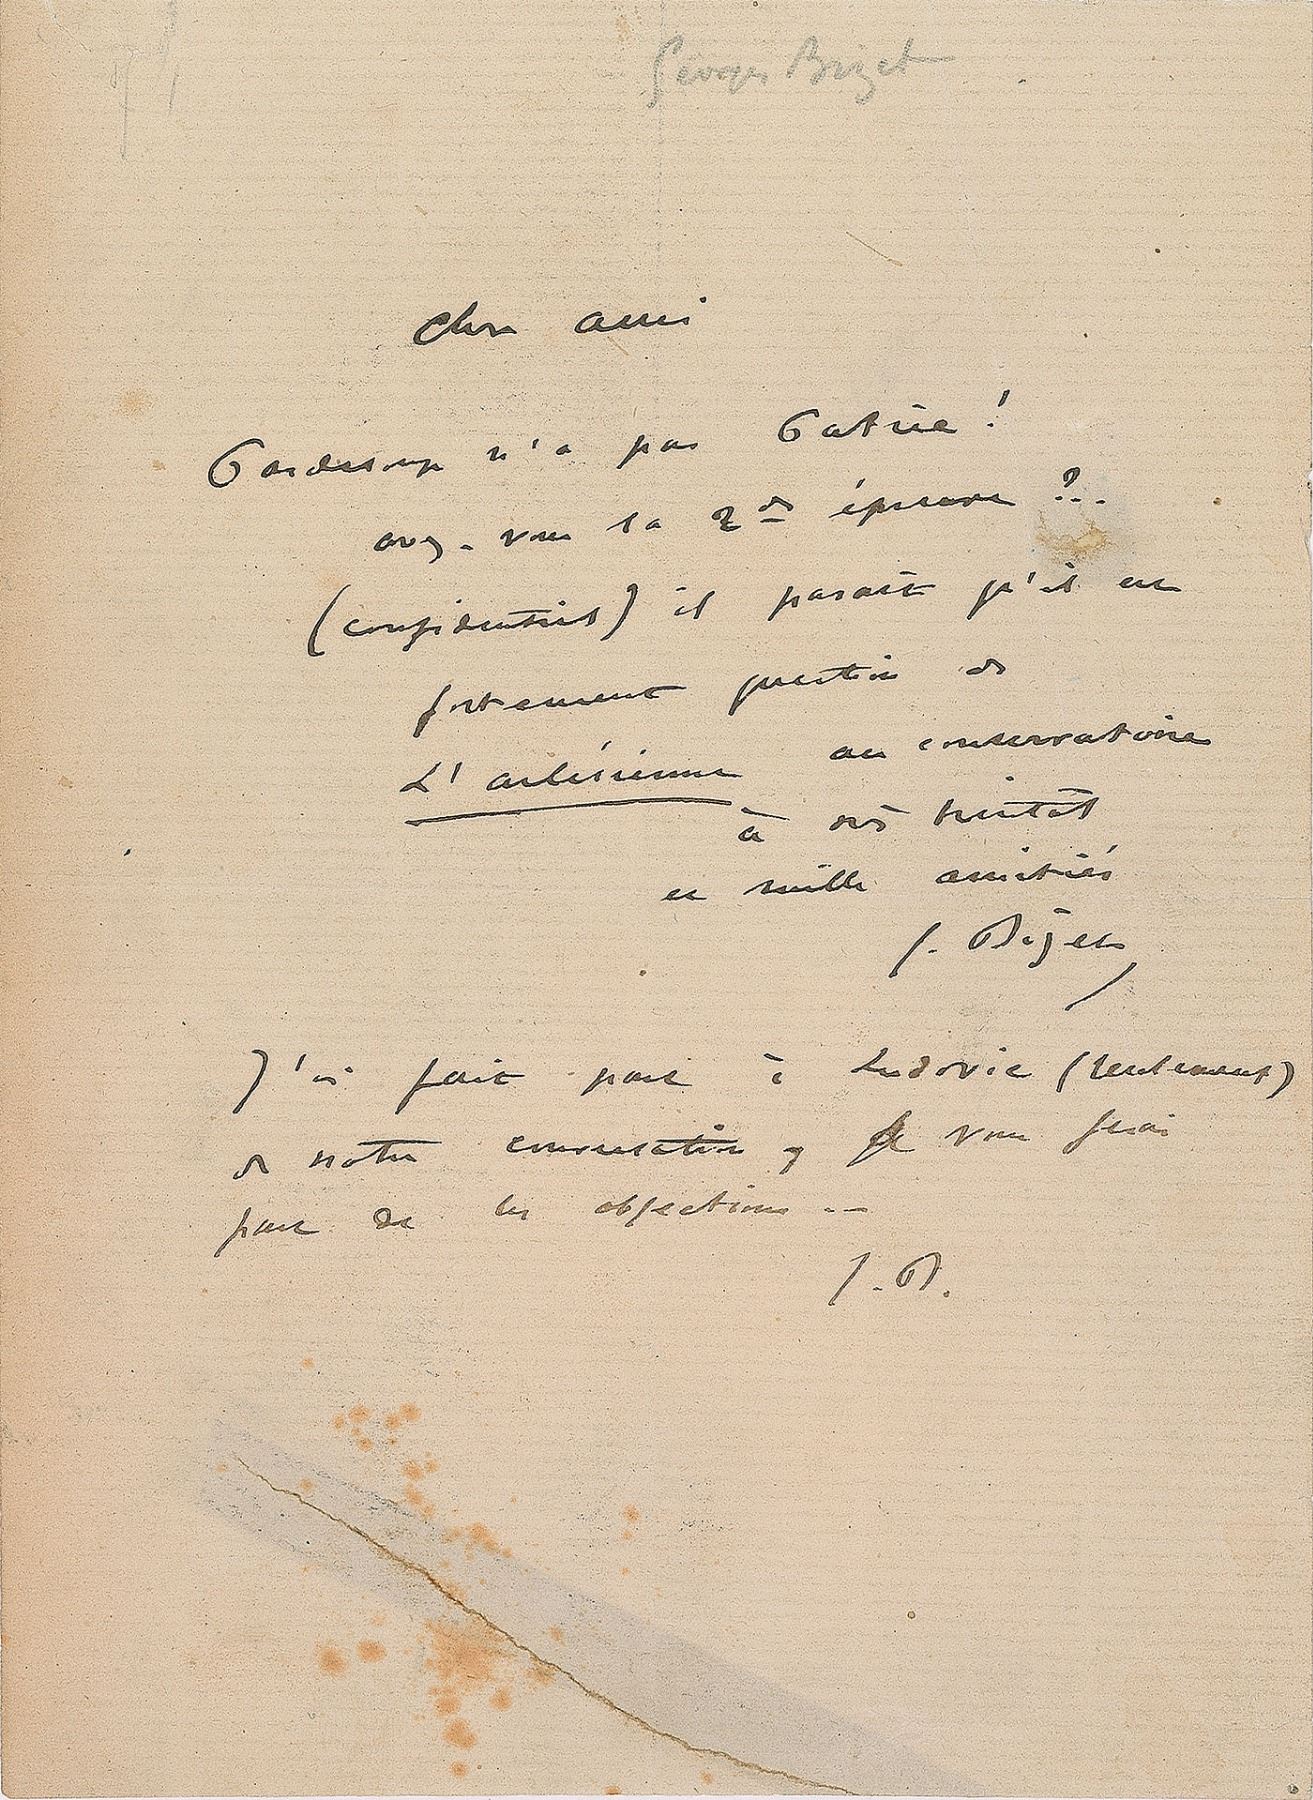 Georges Bizet
Cher ami
n'a pas !
avez-vous la 2de épreuve ?..
(confidentiel) il paraît qu'il est
fortement question de
L'arlésienne au conservatoire
à très bientôt
et mille amitiés
G. Bizet
J'ai fait part à Ludovic (seulement)
de notre conversation, je vous ferai
part de les objections --
G. B.